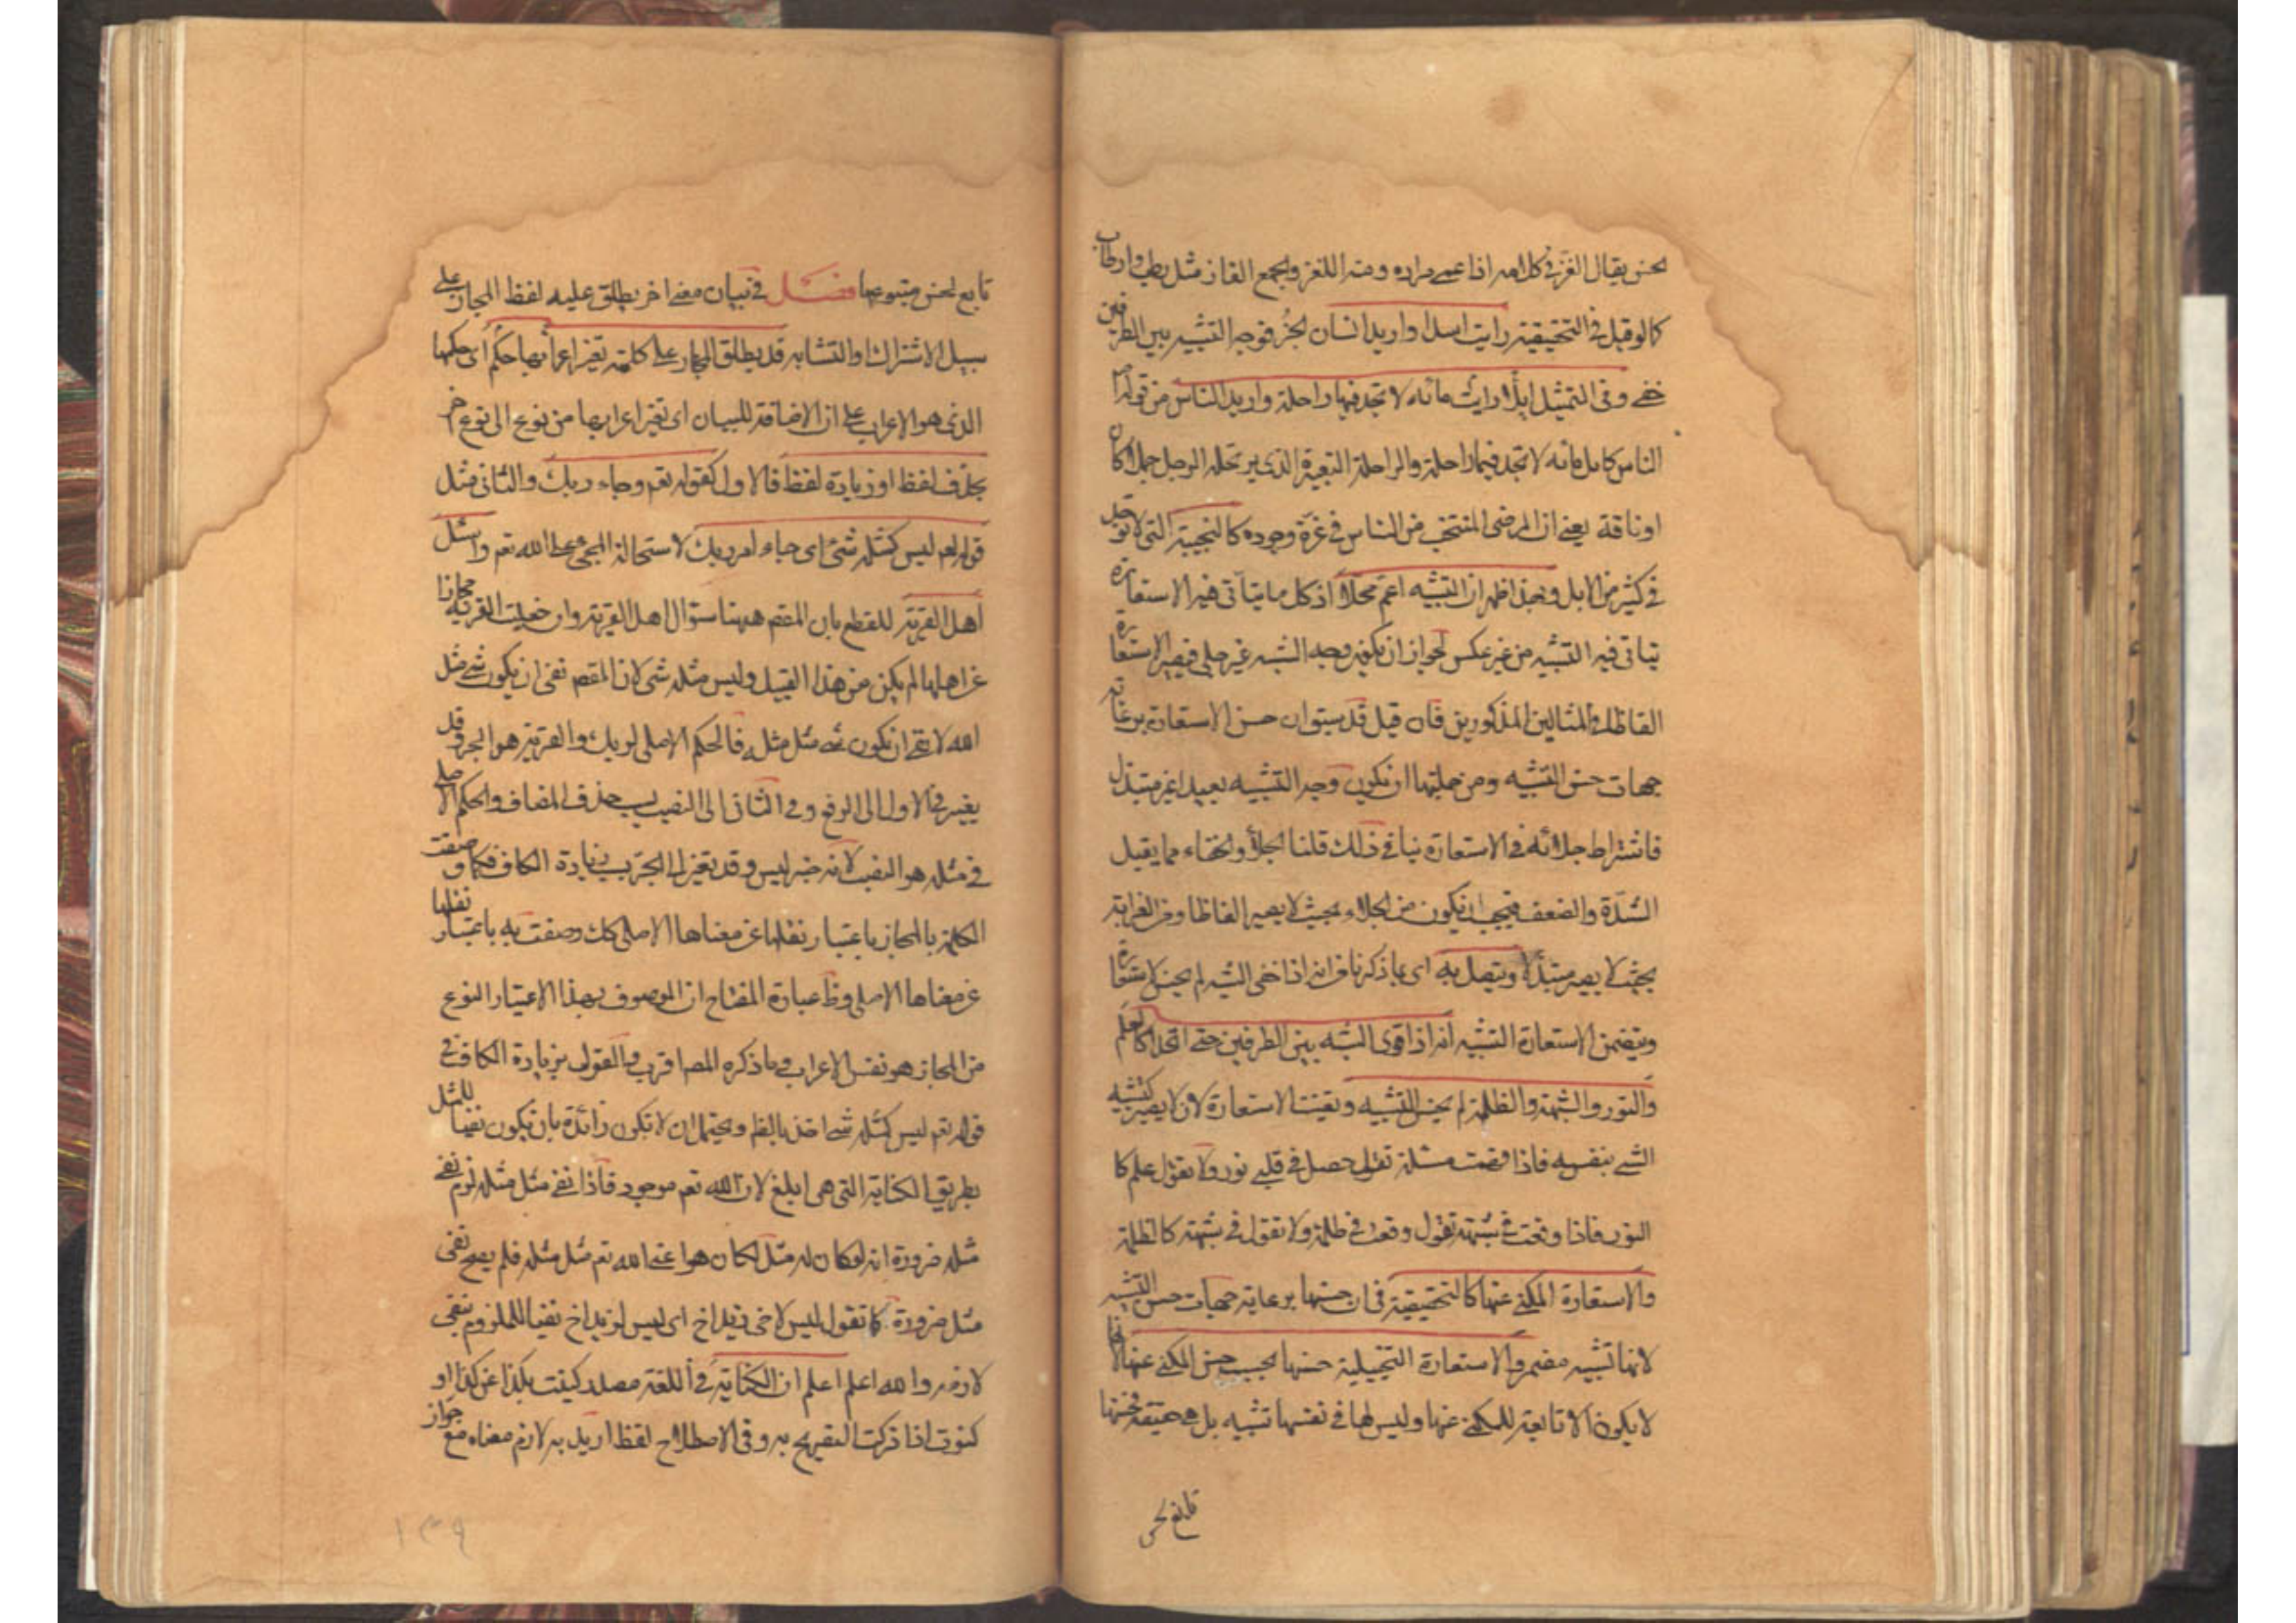 لحسن يقال الغز فى كلامه اذا عمى مراده ومنه اللغز والجمع الغاز مثل رطب وارطاب
كما لو قيل فى التحقيقية رايت اسدا واريد انسان ابخر فوجه التشبيه بين الطرفين
خفى وفى التمثيل ابلا رايت مائه لا تجد فيها راحلة واريد الناس من قوله
الناس كابل مائه لا تجد فيها راحلة والراحلة البعير الذى يرتحله الرجل جملا كان
او ناقة يعنى ان المرضى المنتخب من الناس فى عزة وجوده كالنجيبة التى لا توجد
فى كثير من الابل وبهذا ظهر ان التشبيه اعم محلا اذ كل ما يتأتى فيه الاستعارة
يتاتى فيه التشبيه من غير عكس لجواز ان يكون وجه الشبه غير جلى فيصير الاستعارة
الغازا كالمثالين المذكورين فان قيل قد سبق ان حسن الاستعارة برعاية
جهات حسن التشبيه ومن جملتها ان يكون وجه التشبيه بعيدا غير مبتذل
فاشتراط جلائه فى الاستعارة ينافى ذلك قلنا الجلا والخفاء مما يقبل
الشدة والضعف فيجب ان يكون من الجلاء بحيث لا يصير الغازا ومن الغرابة
بحيث لا يصير مبتذلا ويتصل به اى بما ذكرنا من انه اذا خفى الشبه لم يحسن الاستعارة
ويتضمن الاستعارة التشبيه انه اذا قوى الشبه بين الطرفين حتى اتحدا كالعلم
والنور والشبهة والظلمة لم يحسن التشبيه وتعينت الاستعارة لان لا يصير كتشبيه
الشئ بنفسه فاذا فهمت مسئلة تقول حصل فى قلبى نور ولا تقول علم كا
النور فاذا وقعت فى شبهة تقول وقعت فى ظلمة ولا تقول فى شبهة كالظلمة
والاستعارة المكنى عنها كالتحقيقية فى ان حسنها برعاية جهات حسن التشبيه
لانها تشبيه مضمر والاستعارة التخييلية حسنها بحسب حسن المكنى عنها لانها
لا يكون الا تابعة للمكنى عنها وليس لها فى نفسها تشبيه بل هى حقيقة فحسنها
تابع لحسن
تابع لحسن متبوعها فصل فى بيان معنى اخر يطلق عليه لفظ المجاز على
سبيل الاشتراك او التشابه قد يطلق المجاز على كلمة تغير اعرابها حكم اى حكمها
الذى هو الاعراب على ان الاضافة للبيان اى تغير اعرابها من نوع الى نوع اخر
بحذف لفظ او زيادة لفظ فالاول كقوله تعم وجاء ربك والثانى مثل
قوله تعم ليس كمثله شئ اى جاء امر ربك لاستحالة المجئ على الله تعم واسئل
اهل القرية للقطع بان المقصم ههنا سؤال اهل القرية وان جعلت القرية مجازا
عن اهلها لم يكن من هذا القبيل وليس مثله شئ لان المقصم نفى ان يكون شئ مثل
الله لا نفى ان يكون شئ مثل مثله فالحكم الاصلى لربك والقرية هو الجر وقد
يغير فى الاول الى الرفع وفى الثانى الى النصب بسبب حذف المضاف والحكم الاصلى
فى مثله هو النصب لانه خبر ليس وقد تغير الى الجر بسبب زيادة الكاف فكما وصفت
الكلمة بالمجاز باعتبار نقلها عن معناها الاصلى كك وصفت به باعتبار نقلها
عن معناها الاصلى وظ عبارة المفتاح ان الموصوف بهذا الاعتبار النوع
من المجاز هو نفس الاعراب وما ذكره المص اقرب والقول بزيادة الكاف فى
قوله تعم ليس كمثله شئ اخذ بالظم ويحتمل ان لا تكون زائدة بان يكون نفيا للمثل
بطريق الكناية التى هى ابلغ لان الله تعم موجود فاذا نفى مثل مثله لزم نفى
مثله ضرورة انه لو كان له مثل لكان هو اعنى الله تعم مثل مثله فلم يصح نفى
مثل ضرورة كما تقول ليس لاخى زيد اخ اى ليس لزيد اخ نفيا للملزوم بنفى
لازمه والله اعلم اعلم ان الكناية فى اللغة مصدر كنيت بكذا عن كذا او
كنوت اذا تركت التصريح به وفى الاصطلاح لفظ اريد به لازم معناه مع جواز
١٣٩